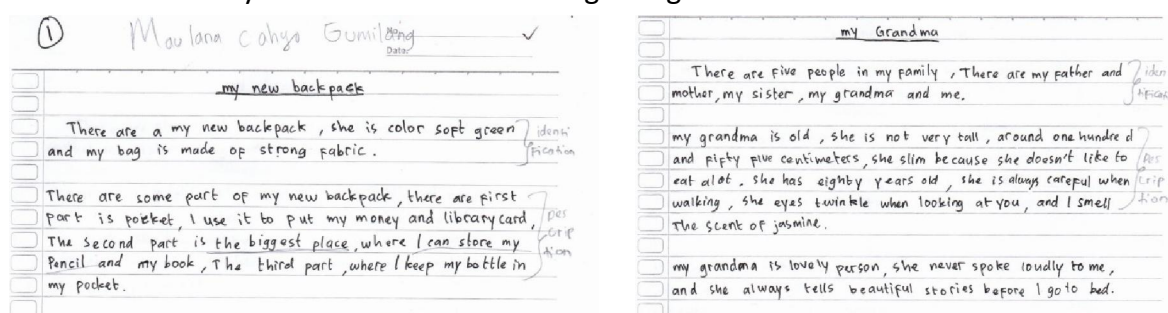 ①
Maulana Cahyo Gumilang
No:
Date:
✓
my new backpack
There are a my new backpack, she is color soft green
and my bag is made of strong fabric.
identification
There are some part of my new backpack, there are first
part is pocket, I use it to put my money and library card,
The second part is the biggest place, where I can store my
Pencil and my book, The third part, where I keep my bottle in
my pocket.
Description
my Grandma
There are five people in my family, There are my father and
mother, my sister, my grandma and me.
identification
my grandma is old, she is not very tall, around one hundred
and fifty five centimeters, she slim because she doesn't like to
eat alot. She has eighty years old, she is always careful when
walking, she eyes twinkle when looking at you, and I smell
The scent of jasmine.
Description
my grandma is lovely person, she never spoke loudly to me,
and she always tells beautiful stories before I go to bed.